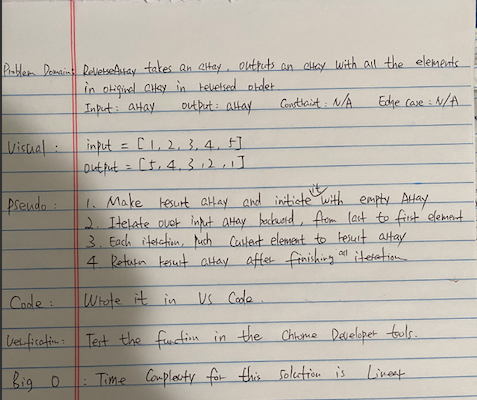 Problem Domain: ReverseArray takes an array, outputs an array with all the elements
in original array in reversed order
Input: array output: array Constraint: N/A Edge case: N/A
Visual: input = [1, 2, 3, 4, 5]
output = [5, 4, 3, 2, 1]
Pseudo: 1. Make result array and initiate it with empty Array
2. Iterate over input array backward, from last to first element
3. Each iteration, push current element to result array
4. Return result array after finishing all iteration
Code: Wrote it in VS Code.
Verification: Test the function in the Chrome Developer tools.
Big O: Time Complexity for this solution is Linear